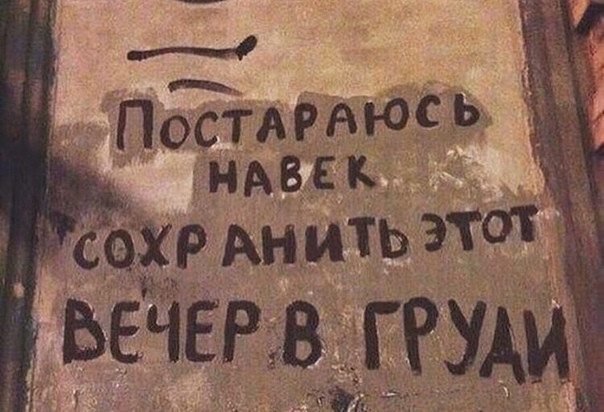 Постараюсь
навек
сохранить этот
вечер в груди